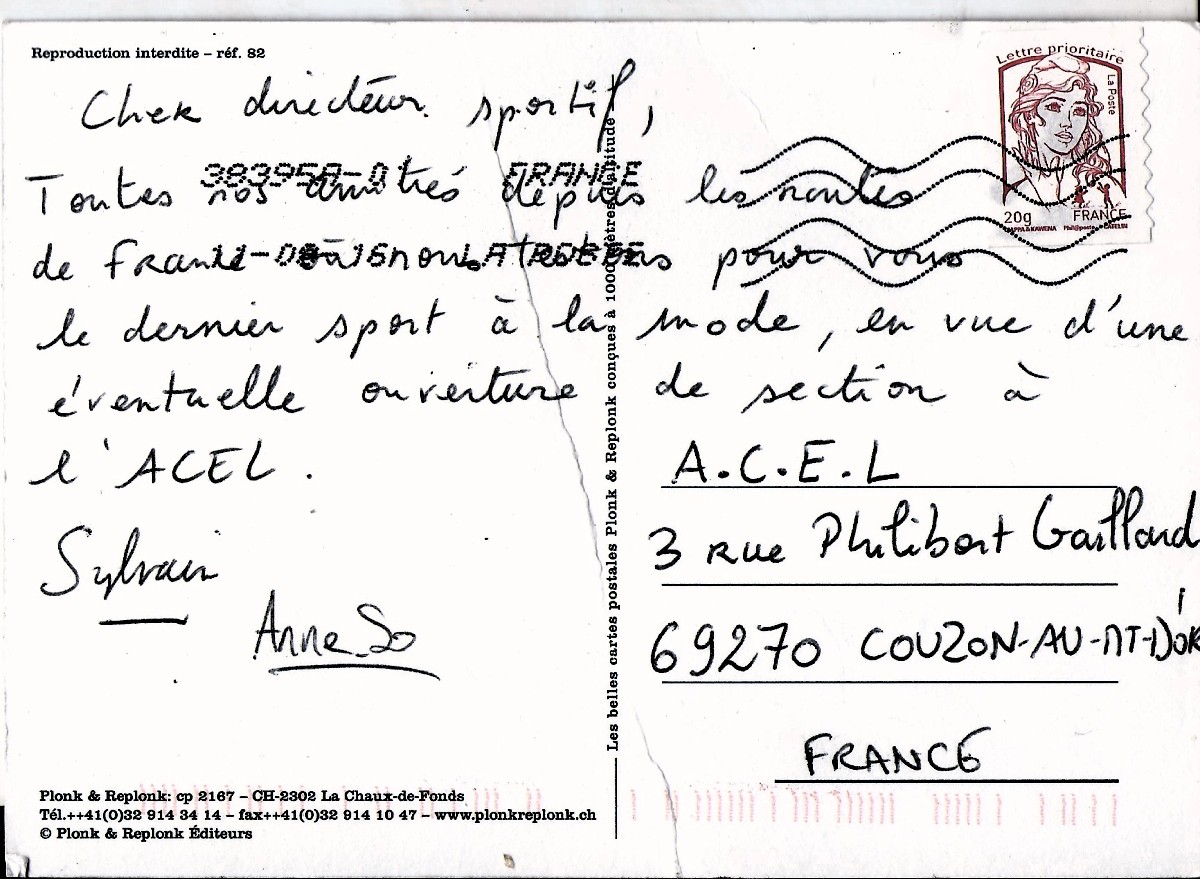 Reproduction interdite – réf. 82
Lettre prioritaire
La Poste
20g FRANCE
Cher directeur sportif,
383958-0 FRANCE
Toutes nos amitiés depuis les routes
de France où nous testons pour vous
le dernier sport à la mode, en vue d'une
éventuelle ouverture de section à
l'ACEL.
Sylvain
Anne_So
Les belles cartes postales Plonk & Replonk conçues à 1000 mètres d'altitude
A.C.E.L
3 rue Philibert Gaillard
69270 COUZON-AU-MT-D'OR
FRANCE
Plonk & Replonk: cp 2167 – CH-2302 La Chaux-de-Fonds
Tél.++41(0)32 914 34 14 – fax++41(0)32 914 10 47 – www.plonkreplonk.ch
© Plonk & Replonk Éditeurs